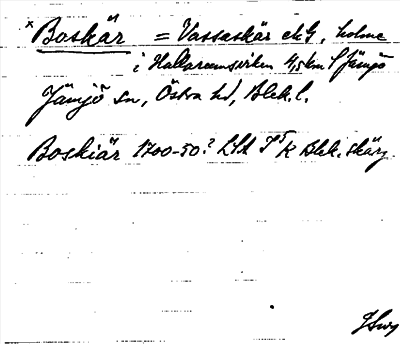 × Boskär = Vassaskär ekG, holme
i Hallaremsviken 4,5 km S Jämjö
Jämjö sn, Östra hd, Blek. l.
Boskiär 1700-50? LSA I5K Blek. skärg.